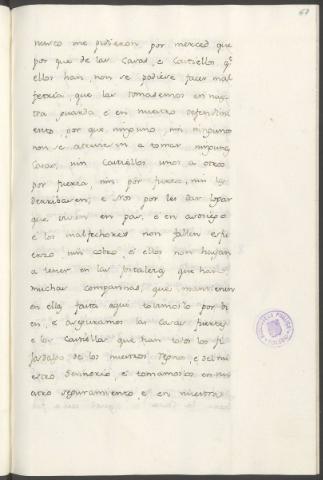 67
nesco me pidieron por merced que
por que de las Casas, e Castiellos qe
ellos han, non se podiese facer mal
fetria, que las tomasemos en nues
tra guarda e en nuestro defendimi
ento, por que ninguno, nin ningunos
non se atreviesen a tomar ningunas
Casas, nin Castiellos unos a otros
por fuerza, nin por furto, nin las
derribasen; e Nos por les dar logar
que vivan en paz, e en asosiego
e los malfechores non fallen esfu
erzo nin cobro, e ellos non hayan
a tener en las fortalezas que han
muchas compannas, que mantenien
en ellas fasta aqui tobimoslo por bi
en, e aseguramos las Casas fuertes
e los Castiellos que han todos los fi
josdalgo de los nuestros Regnos, e del nu
estro Sennorio, e tomamoslos en nu
estro seguramiento, e en nuestra